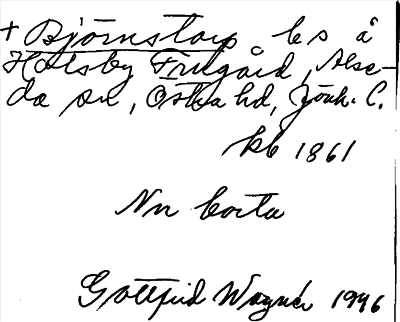 + Björnstorp ls å
Holsby Frugård, Alse-
da sn, Östra hd, Jönk. L.
kb 1861
Nu borta
Gottfrid Wagnér 1946